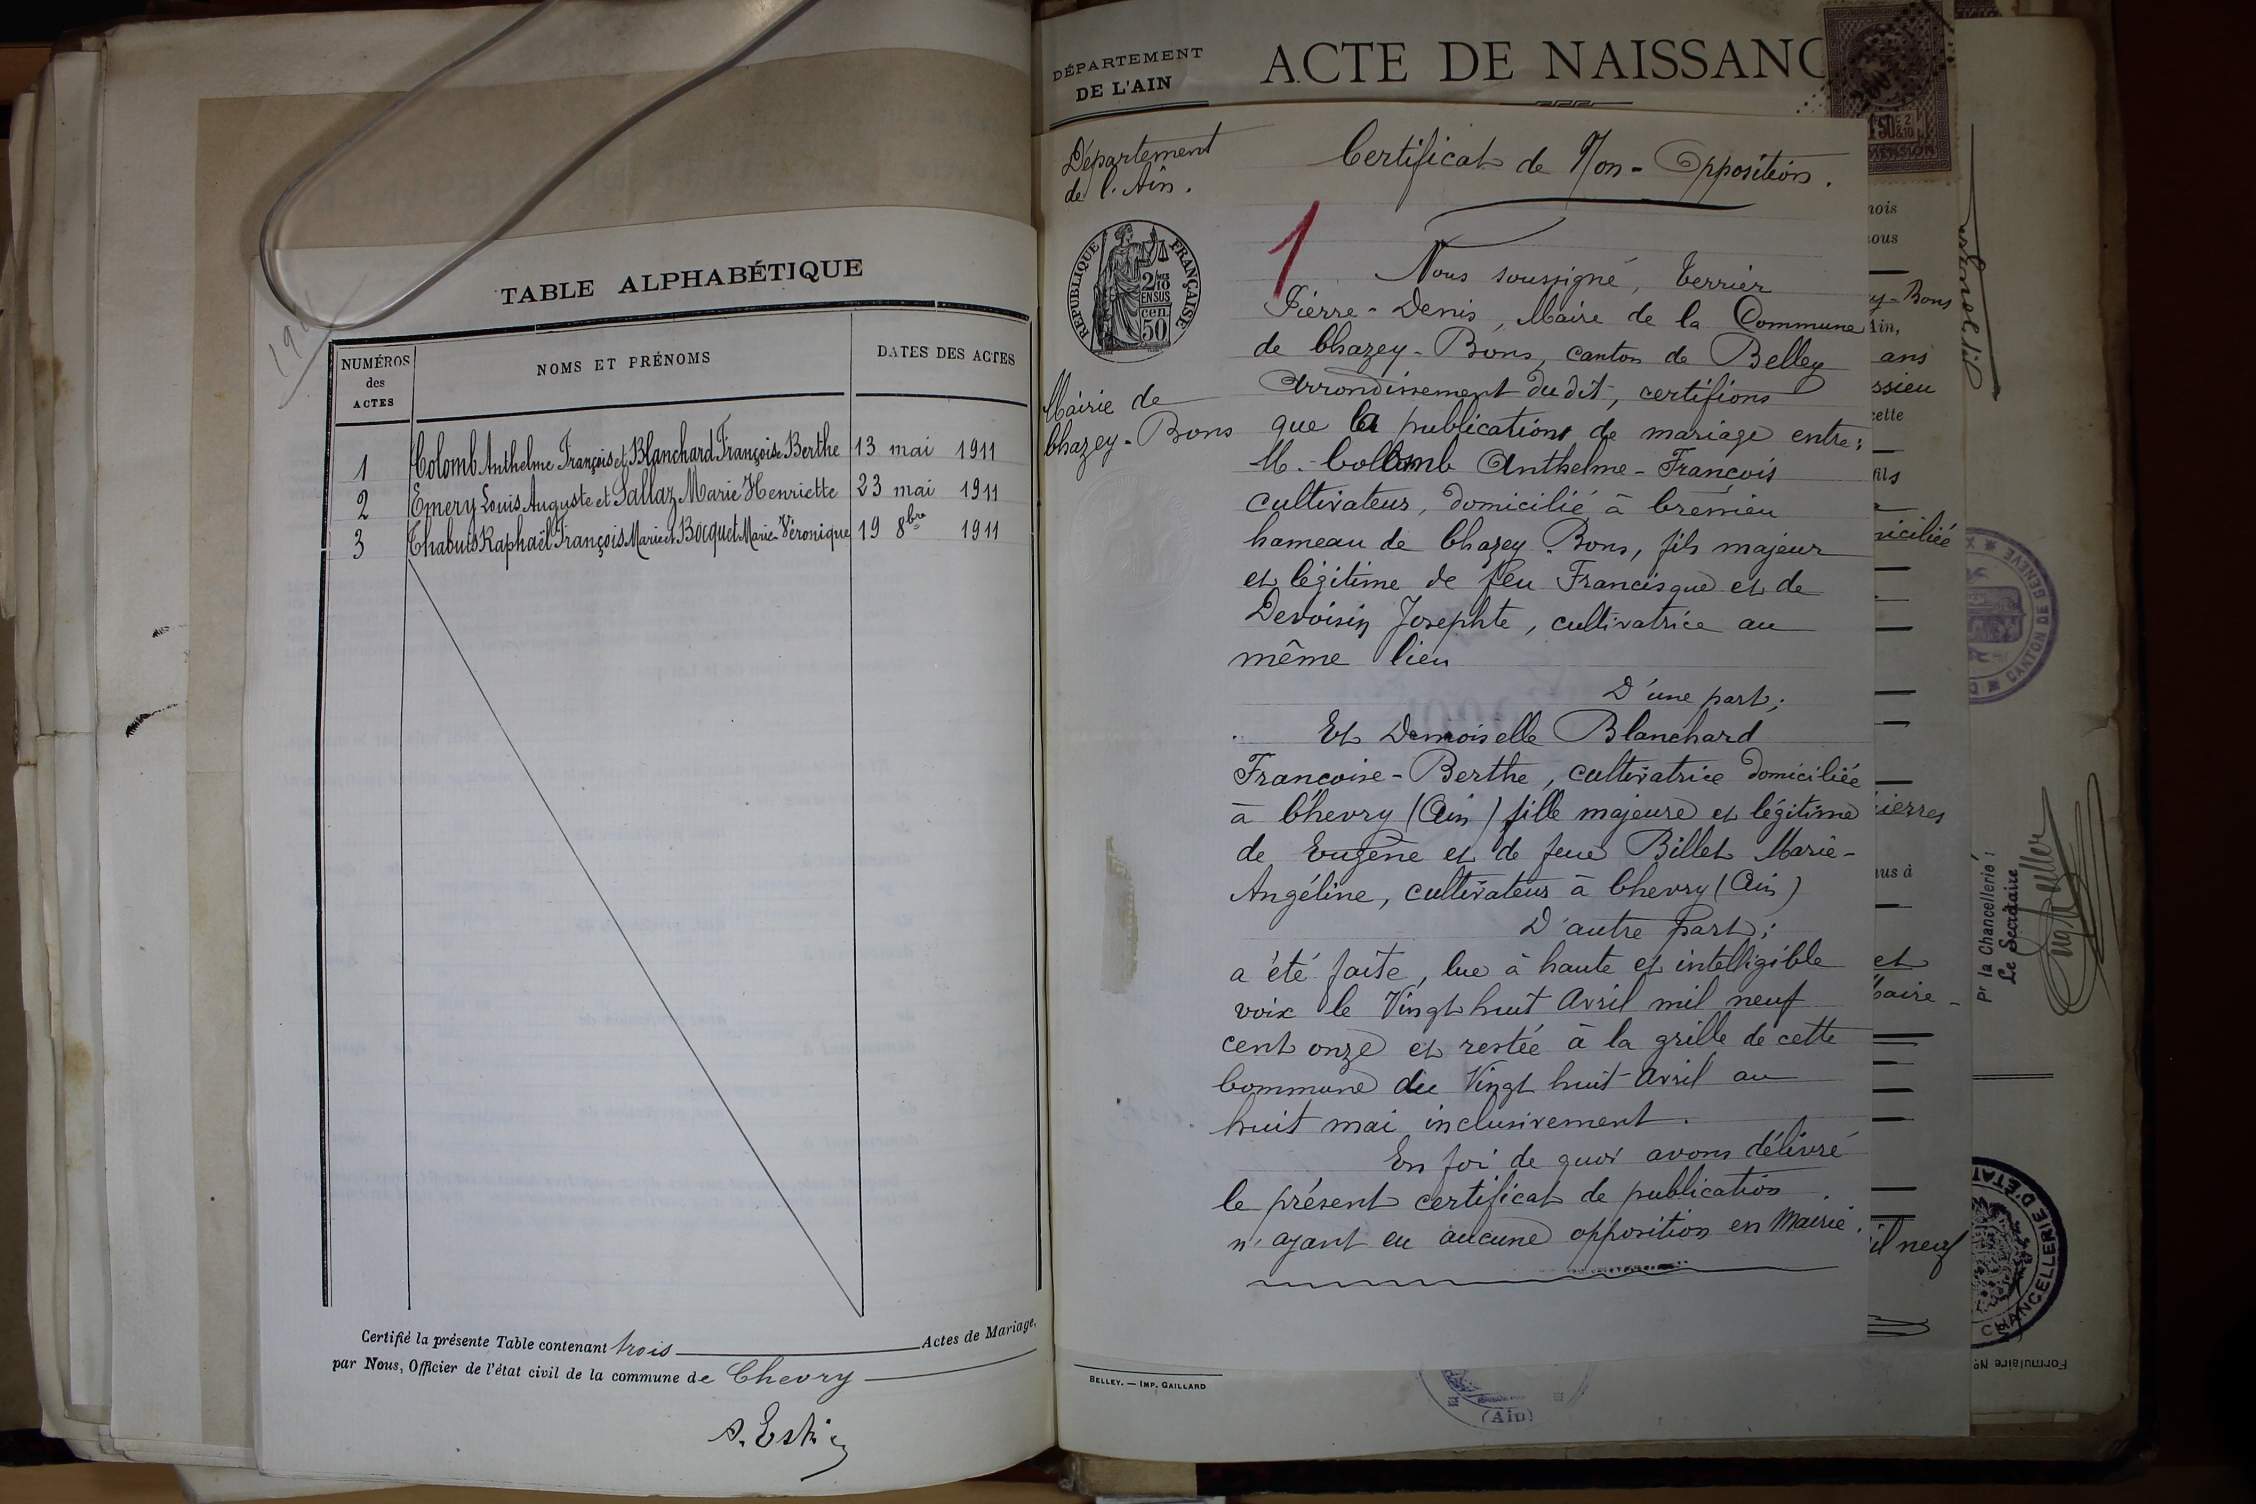 TABLE ALPHABÉTIQUE
NUMÉROS
des
ACTES
NOMS ET PRÉNOMS
DATES DES ACTES
1 Colomb Anthelme François et Blanchard Françoise Berthe 13 mai 1911
2 Emery Louis Auguste et Sallaz Marie Henriette 23 mai 1911
3 Chabuis Raphaël François Marie et Bocquet Marie Véronique 19 8bre 1911
Certifié la présente Table contenant trois Actes de Mariage.
par Nous, Officier de l'état civil de la commune de Chevry
DÉPARTEMENT
DE L'AIN
ACTE DE NAISSANC
Département
de l'Ain.
RÉPUBLIQUE FRANÇAISE
2/10
EN SUS
cen.
50
Mairie de
Chazey-Bons
Certificat de Non-Opposition.
1
Nous soussigné, Terrier
Pierre-Denis, Maire de la Commune
de Chazey-Bons, canton de Belley
Arrondissement dudit, certifions
que la publication de mariage entre:
M. Collomb Anthelme-François
cultivateur, domicilié à Cressieu
hameau de Chazey-Bons, fils majeur
et légitime de feu Francisque et de
Devoisin Josephte, cultivatrice au
même lieu
D'une part;
Et Demoiselle Blanchard
Françoise-Berthe, cultivatrice domiciliée
à Chevry (Ain) fille majeure et légitime
de Eugène et de feue Billet Marie-
Angéline, cultivateur à Chevry (Ain)
D'autre part;
a été faite, lue à haute et intelligible
voix le Vingt huit Avril mil neuf
cent onze et restée à la grille de cette
Commune du Vingt huit Avril au
huit mai inclusivement.
En foi de quoi avons délivré
le présent certificat de publication
n'ayant eu aucune opposition en Mairie.
BELLEY. — IMP. GAILLARD
(Ain)
mois
nous
y-Bons
Ain,
ans
ssieu
cette
fils
miciliée
ierres
nus à
et
Maire-
il neuf
CANTON DE GENÈVE
Pr la Chancellerie:
Le Secrétaire
CHANCELLERIE D'ÉTAT
Formulaire No.